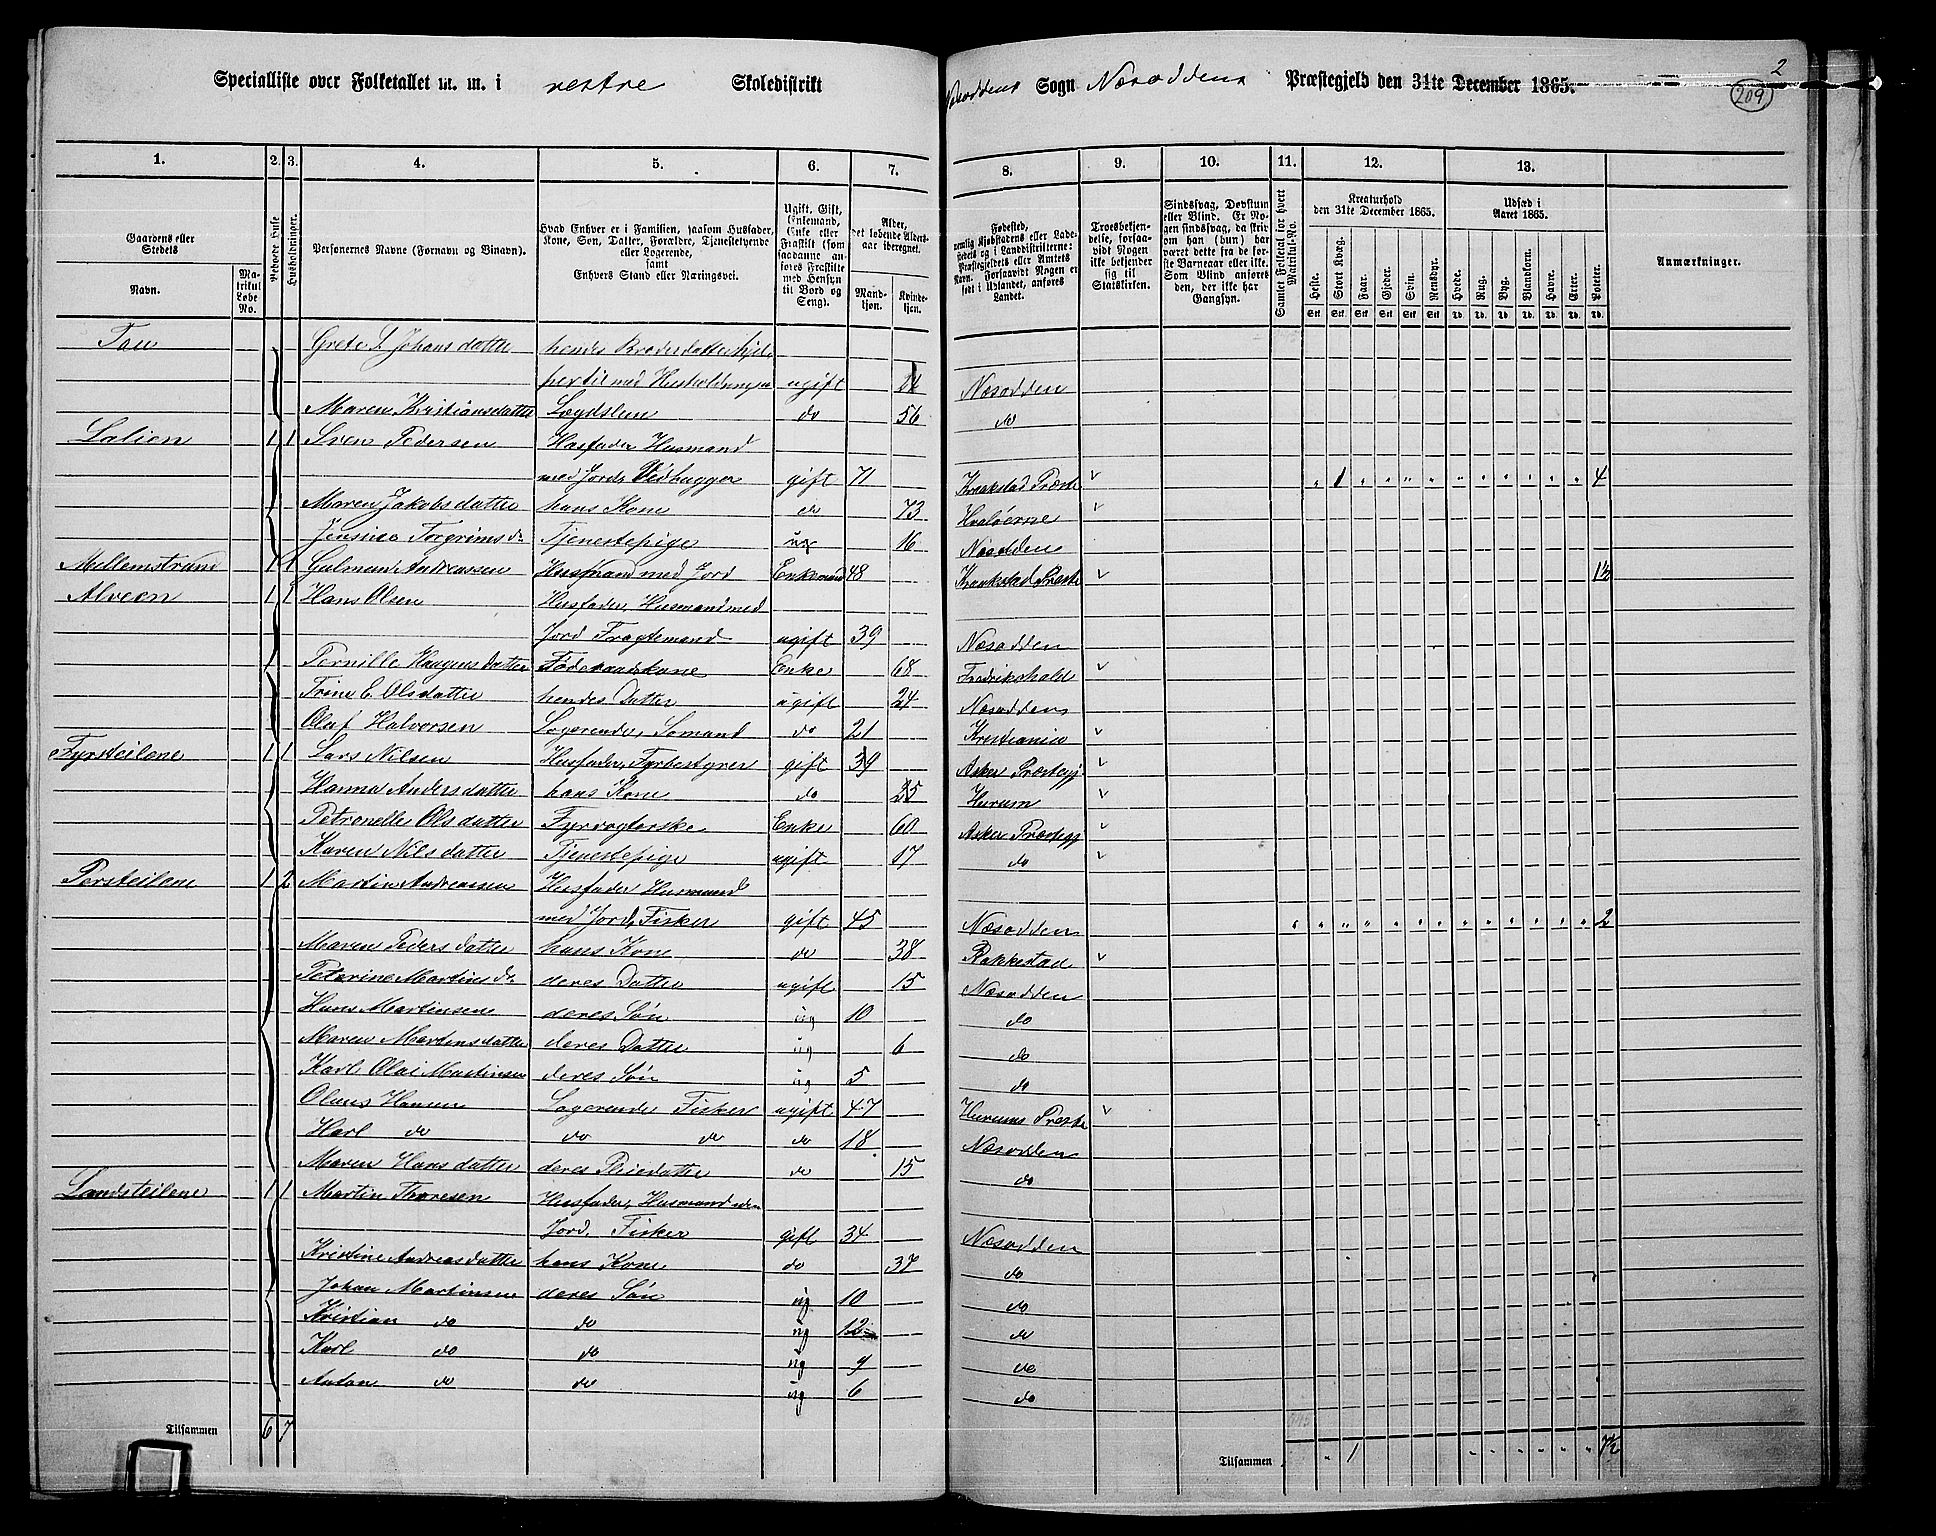 Specialliste over Folketallet m. m. i vestre Skoledistrikt Næsoddens Sogn Næsoddens Præstegjeld den 31te December 1865.
2
209
1. 2. 3. 4. 5. 6. 7. 8. 9. 10. 11. 12. 13.
Gaardens eller Stedets
Navn.
Matrikul Løbe No.
Beboede Huse
Husholdninger.
Personernes Navne (Fornavn og Tilnavn).
Hvad Enhver er i Familien, saasom Husfader, Kone, Søn, Datter, Forældre, Tjenestetyende eller Logerende, samt Enhvers Stand eller Næringsvei.
Ugift, Gift, Enkemand, Enke eller Fraskilt (som saadanne anføres Fraskilte med Hensyn til Bord og Seng).
Alder, det løbende Aldersaar iberegnet.
Mandkjøn.
Kvindekjøn.
Fødested,
nemlig Kjøbstadens eller Ladestedets og i Landdistrikterne: Præstegjeldets eller Amtets Navn. Forsaavidt Nogen er født i Udlandet, anføres Landet.
Troesbekjendelse, forsaavidt Nogen ikke bekjender sig til Statskirken.
Sindssvag, Døvstum eller Blind. Er Nogen sindssvag, da skriv om han (hun) har været dette fra de første Barneaar eller ikke. Som Blind anføres den, der ikke har Gangsyn.
Samlet Folketal for hvert Matrikul-No.
Kreaturhold den 31te December 1865.
Heste. Stort Kvæg. Faar. Gjeder. Svin. Rensdyr.
Udsæd i Aaret 1865.
Hvede. Rug. Byg. Blandkorn. Havre. Erter. Poteter.
Stk. Stk. Stk. Stk. Stk. Stk. Td. Td. Td. Td. Td. Td. Td.
Anmærkninger.
Grete L Johansdatter hendes Broderdatter hjel-
per til med Husholdningen ugift 24 Næsodden
Maren Kristiansdatter Lægdslem do 56 do
Lalien 1 1 Sven Pedersen Husfader, Husmand
med Jord, Vedhugger gift 71 Kraakstad Præste 1 4
Maren Jakobsdatter hans Kone do 73 Hvaløerne
Torgrimsd. Tjenestepige ug 16 Næsodden
Mellemstrand 1 1 Gulman Andreassen Husmand med Jord Enkemand 48 Kraakstad Præste 1½
Alveen 1 1 Hans Olsen Husfader, Husmand med
Jord Fragtemand ugift 39 Næsodden
Pernille Haagensdatter Føderaadskone Enke 68 Fredrikshald
Trine C. Olsdatter hendes Datter ugift 24 Næsodden
Oluf Halvorsen Logerende, Sømand do 21 Kristiania
Fyrsteilene 1 1 Lars Nilsen Husfader, Fyrbestyrer gift 39 Asker Præstegj
Hanna Andersdatter hans Kone do 25 Hurum
Petronelle Olsdatter Fyrvogterske Enke 60 Asker Præstegj
Karen Nilsdatter Tjenestepige ugift 17 do
Persteilene 1 2 Martin Andreassen Husfader Husmand
med Jord, Fisker gift 45 Næsodden 2
Maren Pedersdatter hans Kone do 38 Rakkestad
Peterine Martinsd. deres Datter ugift 15 Næsodden
Hans Martinsen deres Søn ug 10 do
Maren Martinsdatter deres Datter ug 6 do
Karl Olai Martinsen deres Søn ug 5 do
Olaus Hansen Logerende Fisker ugift 47 Hurums Præste
Karl do do do do 18 Næsodden
Maren Hansdatter deres Pleiedatter do 15 do
Landsteilene 1 1 Martin Thoresen Husfader, Husmand uden
Jord, Fisker gift 34 Næsodden
Kristine Andreasdatter hans Kone do 37 do
Johan Martinsen deres Søn ug 10 do
Kristian do do ug 12 do
Karl do do ug 9 do
Anton do do ug 6 do
Tilsammen 6 7
Tilsammen 1 7½